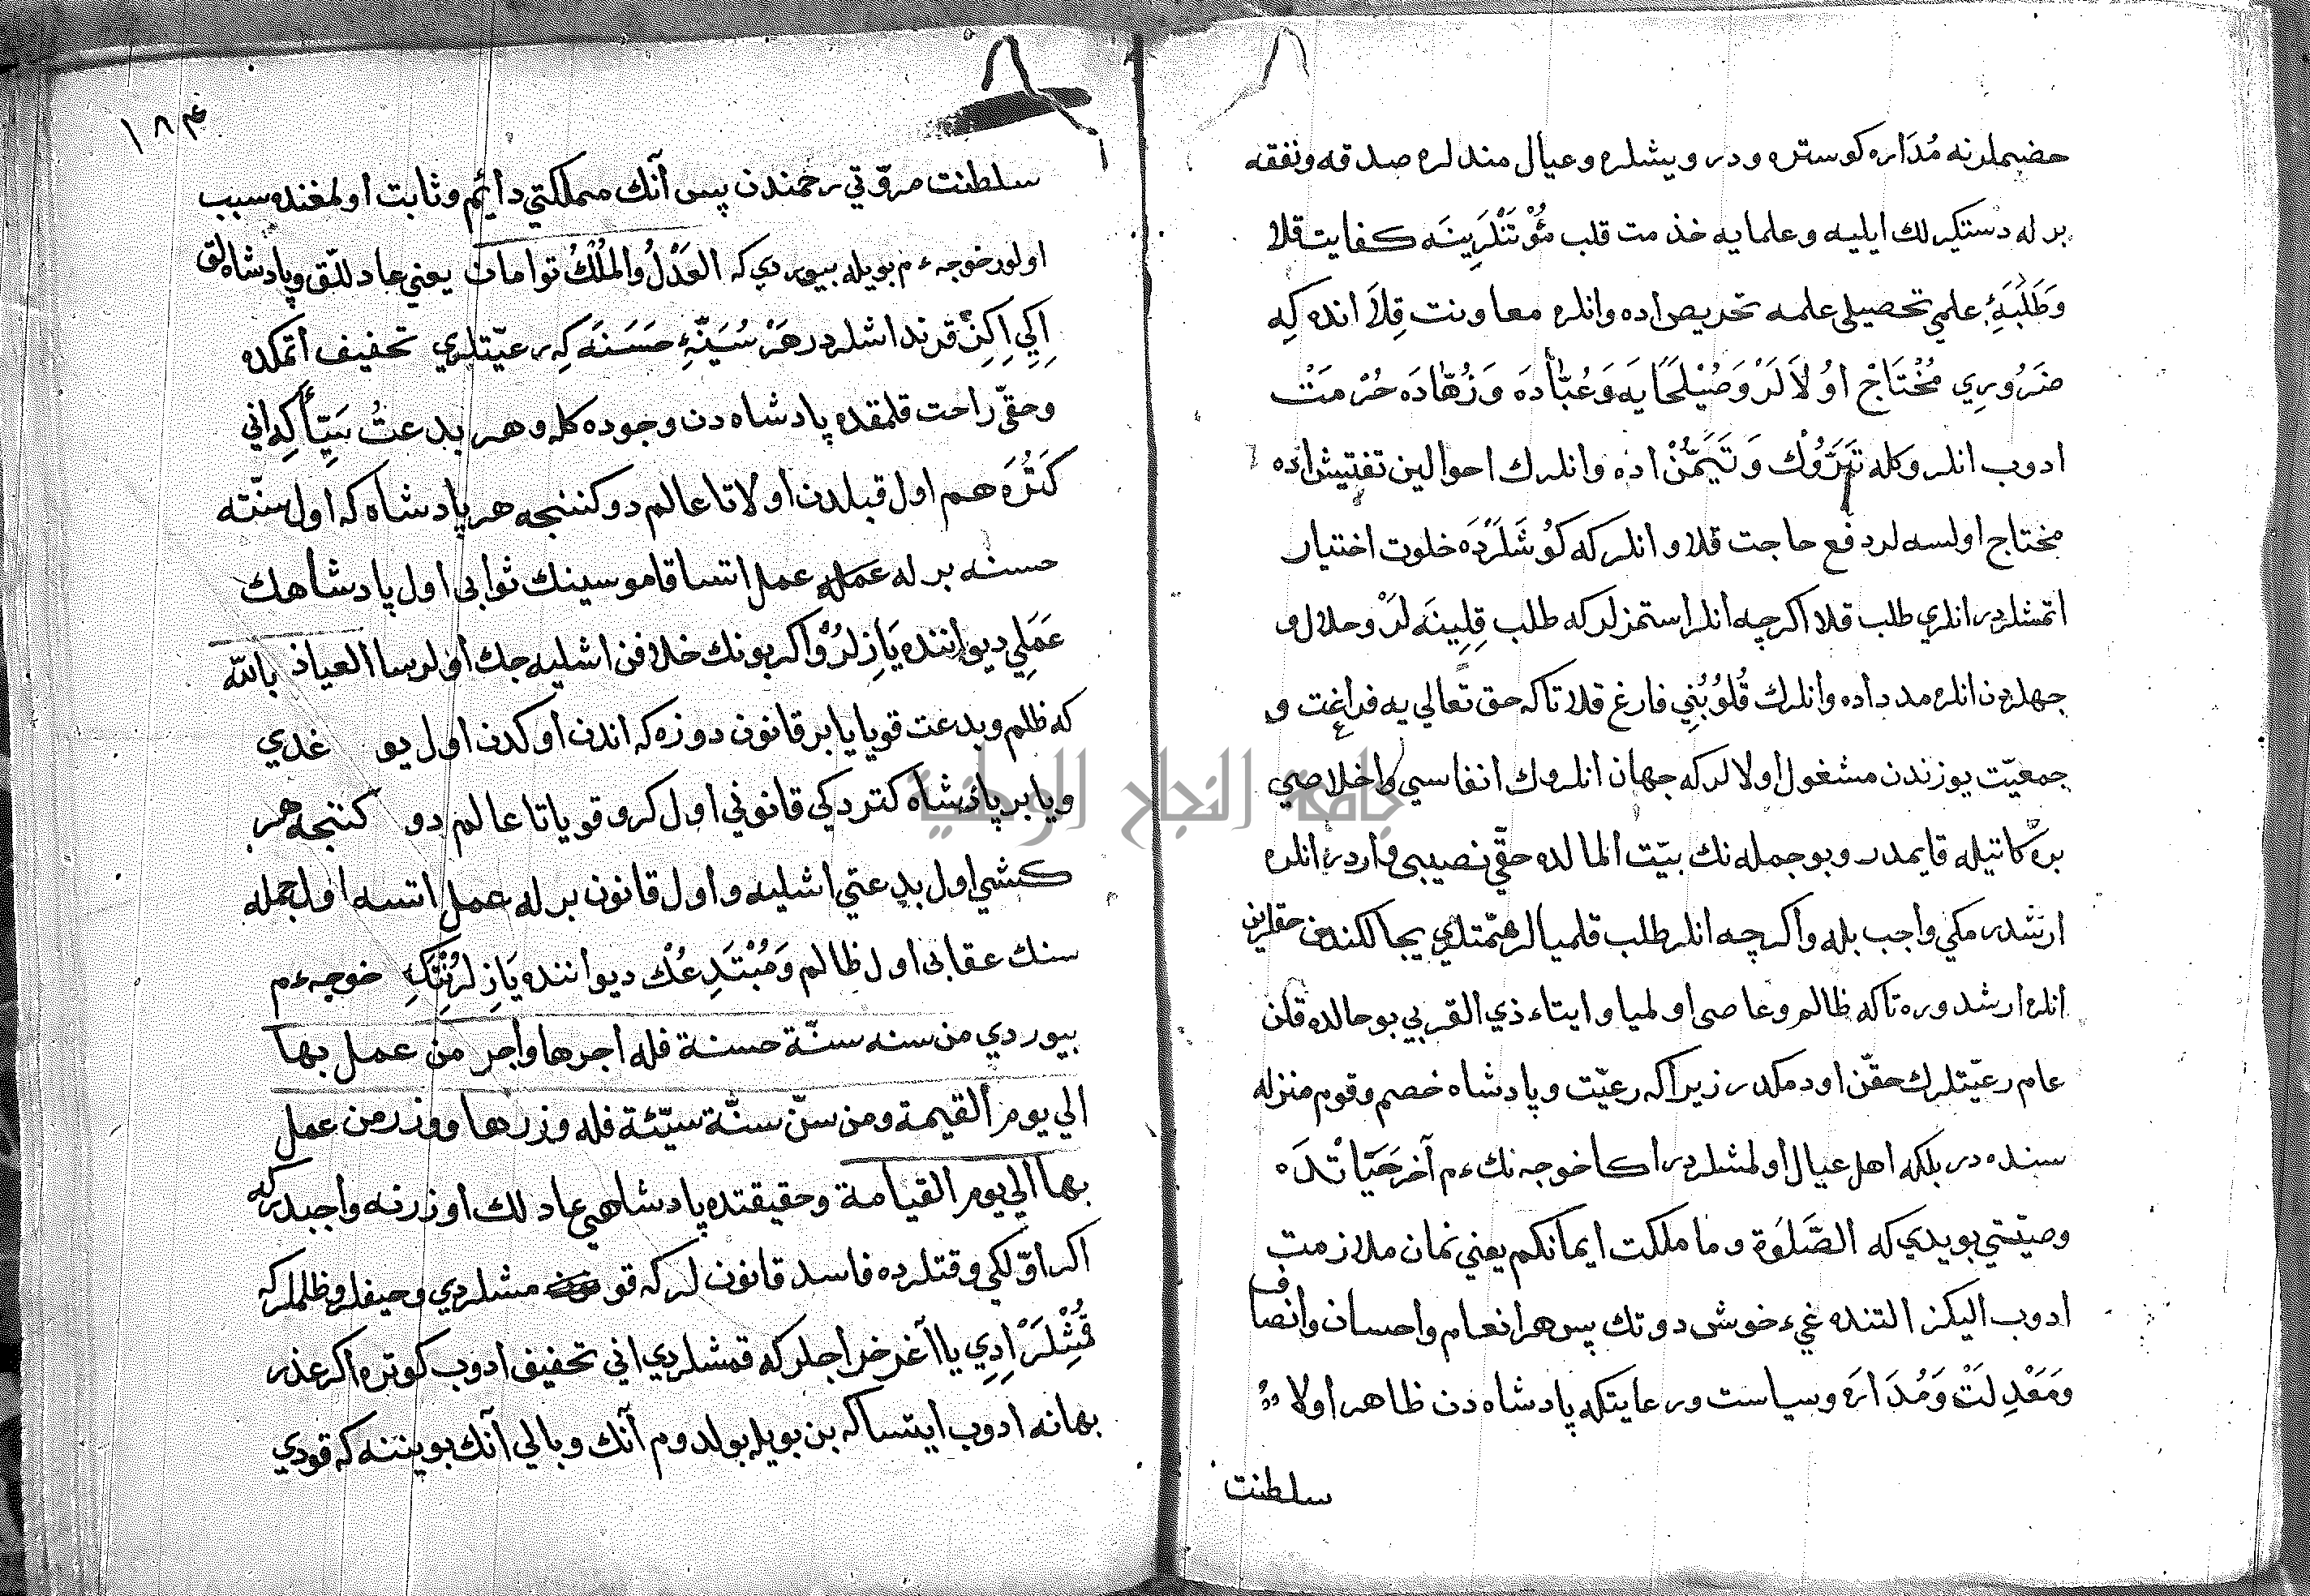 حضملرنه مُدَاره كوستره ودرويشلره وعيال مندلره صدقه ونفقه
برله دستكيرلك ايليه وعلمايه خذمت قلب مُؤْنَتْلَرِينَه كفايت قلا
وَطَلَبَهِٔ علمي تحصيلي علمه تحريص اده وانلره معاونت قِلاَ انده كِه
ضَرُورِي مُحْتَاجْ اوُلاَلَرْ وَصُلَحَايَه وَعُبَّادَه وَزُهَّادَه حُرْمَتْ
ادوب انلر وكله تَبَرُّوكْ وَتَيَمُّنْ اده وانلرك احوالين تفتيش اده
مختاج اولسه لر دفع حاجت قلا وانلركه كوُشَلَرْدَه خلوت اختيار
اتمشلردر انلري طلب قلا اكرچه انلر استمزلر كه طلب قِلِينَه لَرْ وحلال و
جهلردن انلره مدد اده وانلرك قُلوُبُنِي فارغ قلا تاكه حق تعالي يه فراغت و
جمعيّت يوزندن مشغول اولالر كه جهان انلروك انفاسي واخلاصي
بركاتيله قايمدر وبو جمله نك بيّت المالده حقّي نصيبي واردر انلره
ارشدرمكي واجب بله واكرچه انلر طلب قلميالر همّتلري يجالكندن حقلرين
انلره ارشدوره تاكه ظالم وعاصي اولميا وايتاء ذي القربي بو حالده قلن
عام رعيّتلرك حقّن اودمكدر زيراكه رعيّت وپادشاه خصم وقوم منزله
سنده در بلكه اهل عيال اولمشلردر اكا خوجه نك ءم آخر حَيَاتْدَه
وصيّتي بويدي كه الصَّلوَة وما ملكت ايمانكم يعني نماز ملازمت
ادوب اليكز التنده غيء خوش دوتك پس هر انعام واحسان وانصاف
ومَعْدِلَتْ وَمُدَارَه وسياست ورعايتكه پادشاه دن ظاهر اولا
سلطنت
١٨٤
سلطنت مروّتي رحمندن پس آنك مملكتي دائم وثابت اولمغنده سبب
اولور خوجهء م بويله بيوردي كه العَدْلُ والمُلْكُ توامان يعني عادللّق وپادشاهلق
اِكِي اِكِزْ قرنداشلردر هَرْ سُنَّتِ حَسَنَه كِه رعيّتلري تخفيف اتمكده
وحقّي راحت قلمقده پادشاه دن وجوده كله وهر بدعتُ سَيِّأ كِه اني
كَتُرَه هم اول قبلدن اولا تا عالم دوكننجه هر پادشاه كه اول سنّته
حسنه برله عمله عمل اتسا قاموسينك ثوابي اول پادشاهك
عَمَلِي ديواننده يَازِلُرْ واكر بونك خلافن اشليه جك اولرسا العياذ بالله
كه ظلم وبدعت قويا يا بر قانون دوزه كه اندن اوكدن اول يو غدي
ويا بر پادشاه كتردكي قانوني اول كرو قويا تا عالم دو كننجه هر
كشي اول بدعتي اشليه واول قانون برله عمل اتسه اول جمله
سنك عقابي اول ظالم وَمُبْتَدِعُكْ ديواننده يَازِلُرْ نِتَكِ خوجهء م
بيوردي من سنه سنّة حسنة فله أجرها وأجر من عمل بها
الي يوم القيمة ومن سنّ سنّة سيّئة فله وزرها ووزر من عمل
بها الي يوم القيامة وحقيقتده پادشاهي عادلك اوزرنه واجبدركه
اكر اوّلكي وقتلرده فاسد قانون لركه قو مشلردي وحيفلر وظلملركه
قُمُشْلَرْ اِدِي يا آغر خراجلركه قمشلردي اني تخفيف ادوب كوتره اكر عذر
بهانه ادوب ايتسا كه بن بويله بولدوم آنك وبالي آنك بويننه كه قودي